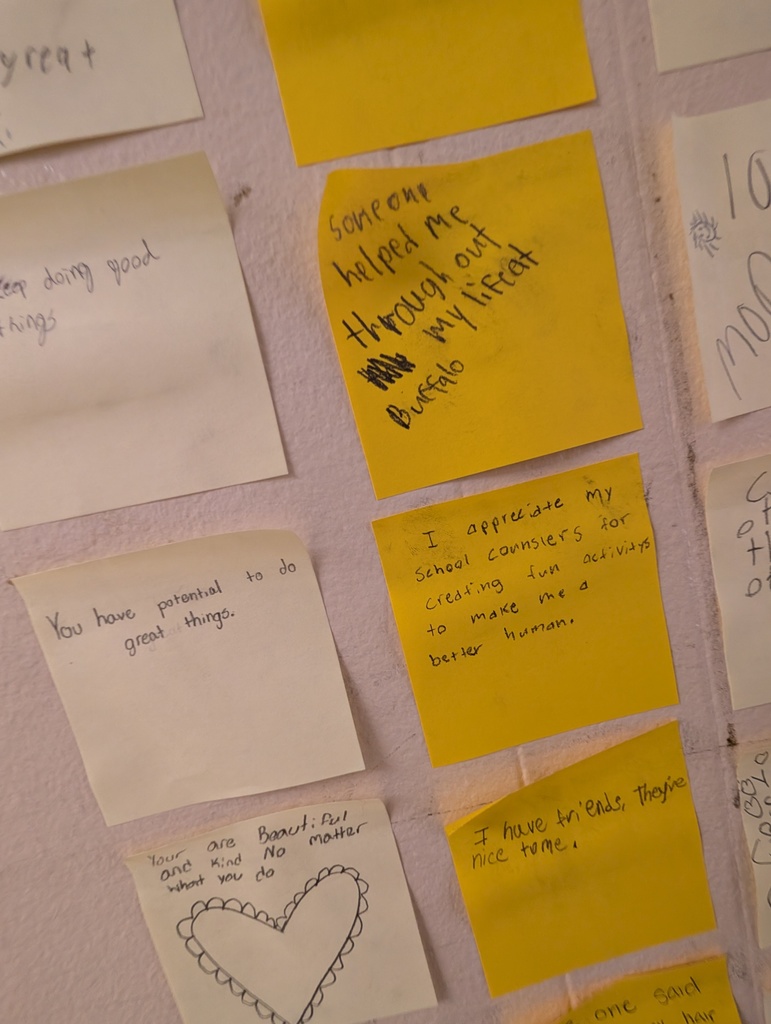 great
keep doing good
things
You have potential to do
great things.
Your are Beautiful
and Kind No matter
what you do
someone
helped me
through out
my lifeat
Buffalo
I appreciate my
school counslers for
creating fun activitys
to make me a
better human.
I have friends, They're
nice to me.
one said
hair
10